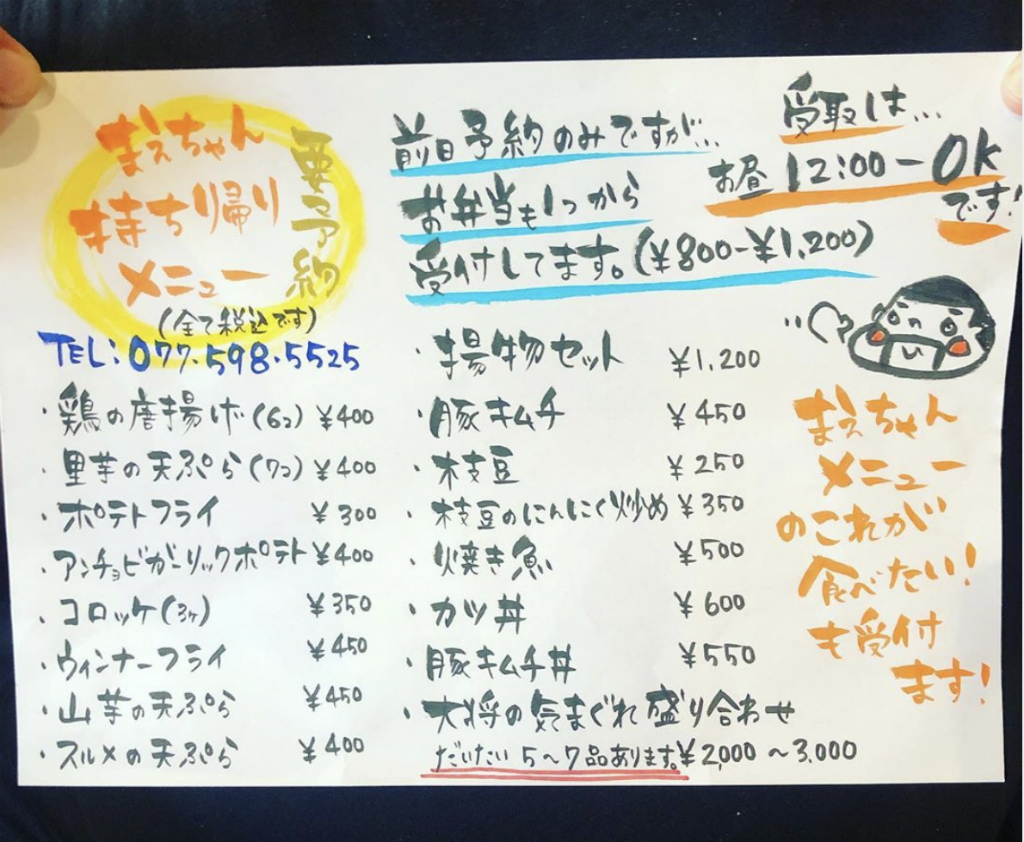 まえちゃん
持ち帰り
メニュー
要予約
(全て税込です)
TEL:077-598-5525
前日予約のみですが...
お弁当も1つから
受付してます。(¥800-¥1,200)
受取は...
お昼12:00-OK
です!
・鶏の唐揚げ(6コ) ¥400
・里芋の天ぷら(7コ) ¥400
・ポテトフライ ¥300
・アンチョビガーリックポテト ¥400
・コロッケ(3ヶ) ¥350
・ウィンナーフライ ¥450
・山芋の天ぷら ¥450
・スルメの天ぷら ¥400
・揚物セット ¥1,200
・豚キムチ ¥450
・枝豆 ¥250
・枝豆のにんにく炒め ¥350
・焼き魚 ¥500
・カツ丼 ¥600
・豚キムチ丼 ¥550
・大将の気まぐれ盛り合わせ
だいたい5~7品あります。¥2,000~3,000
まえちゃん
メニュー
のこれが
食べたい!
も受付
ます!